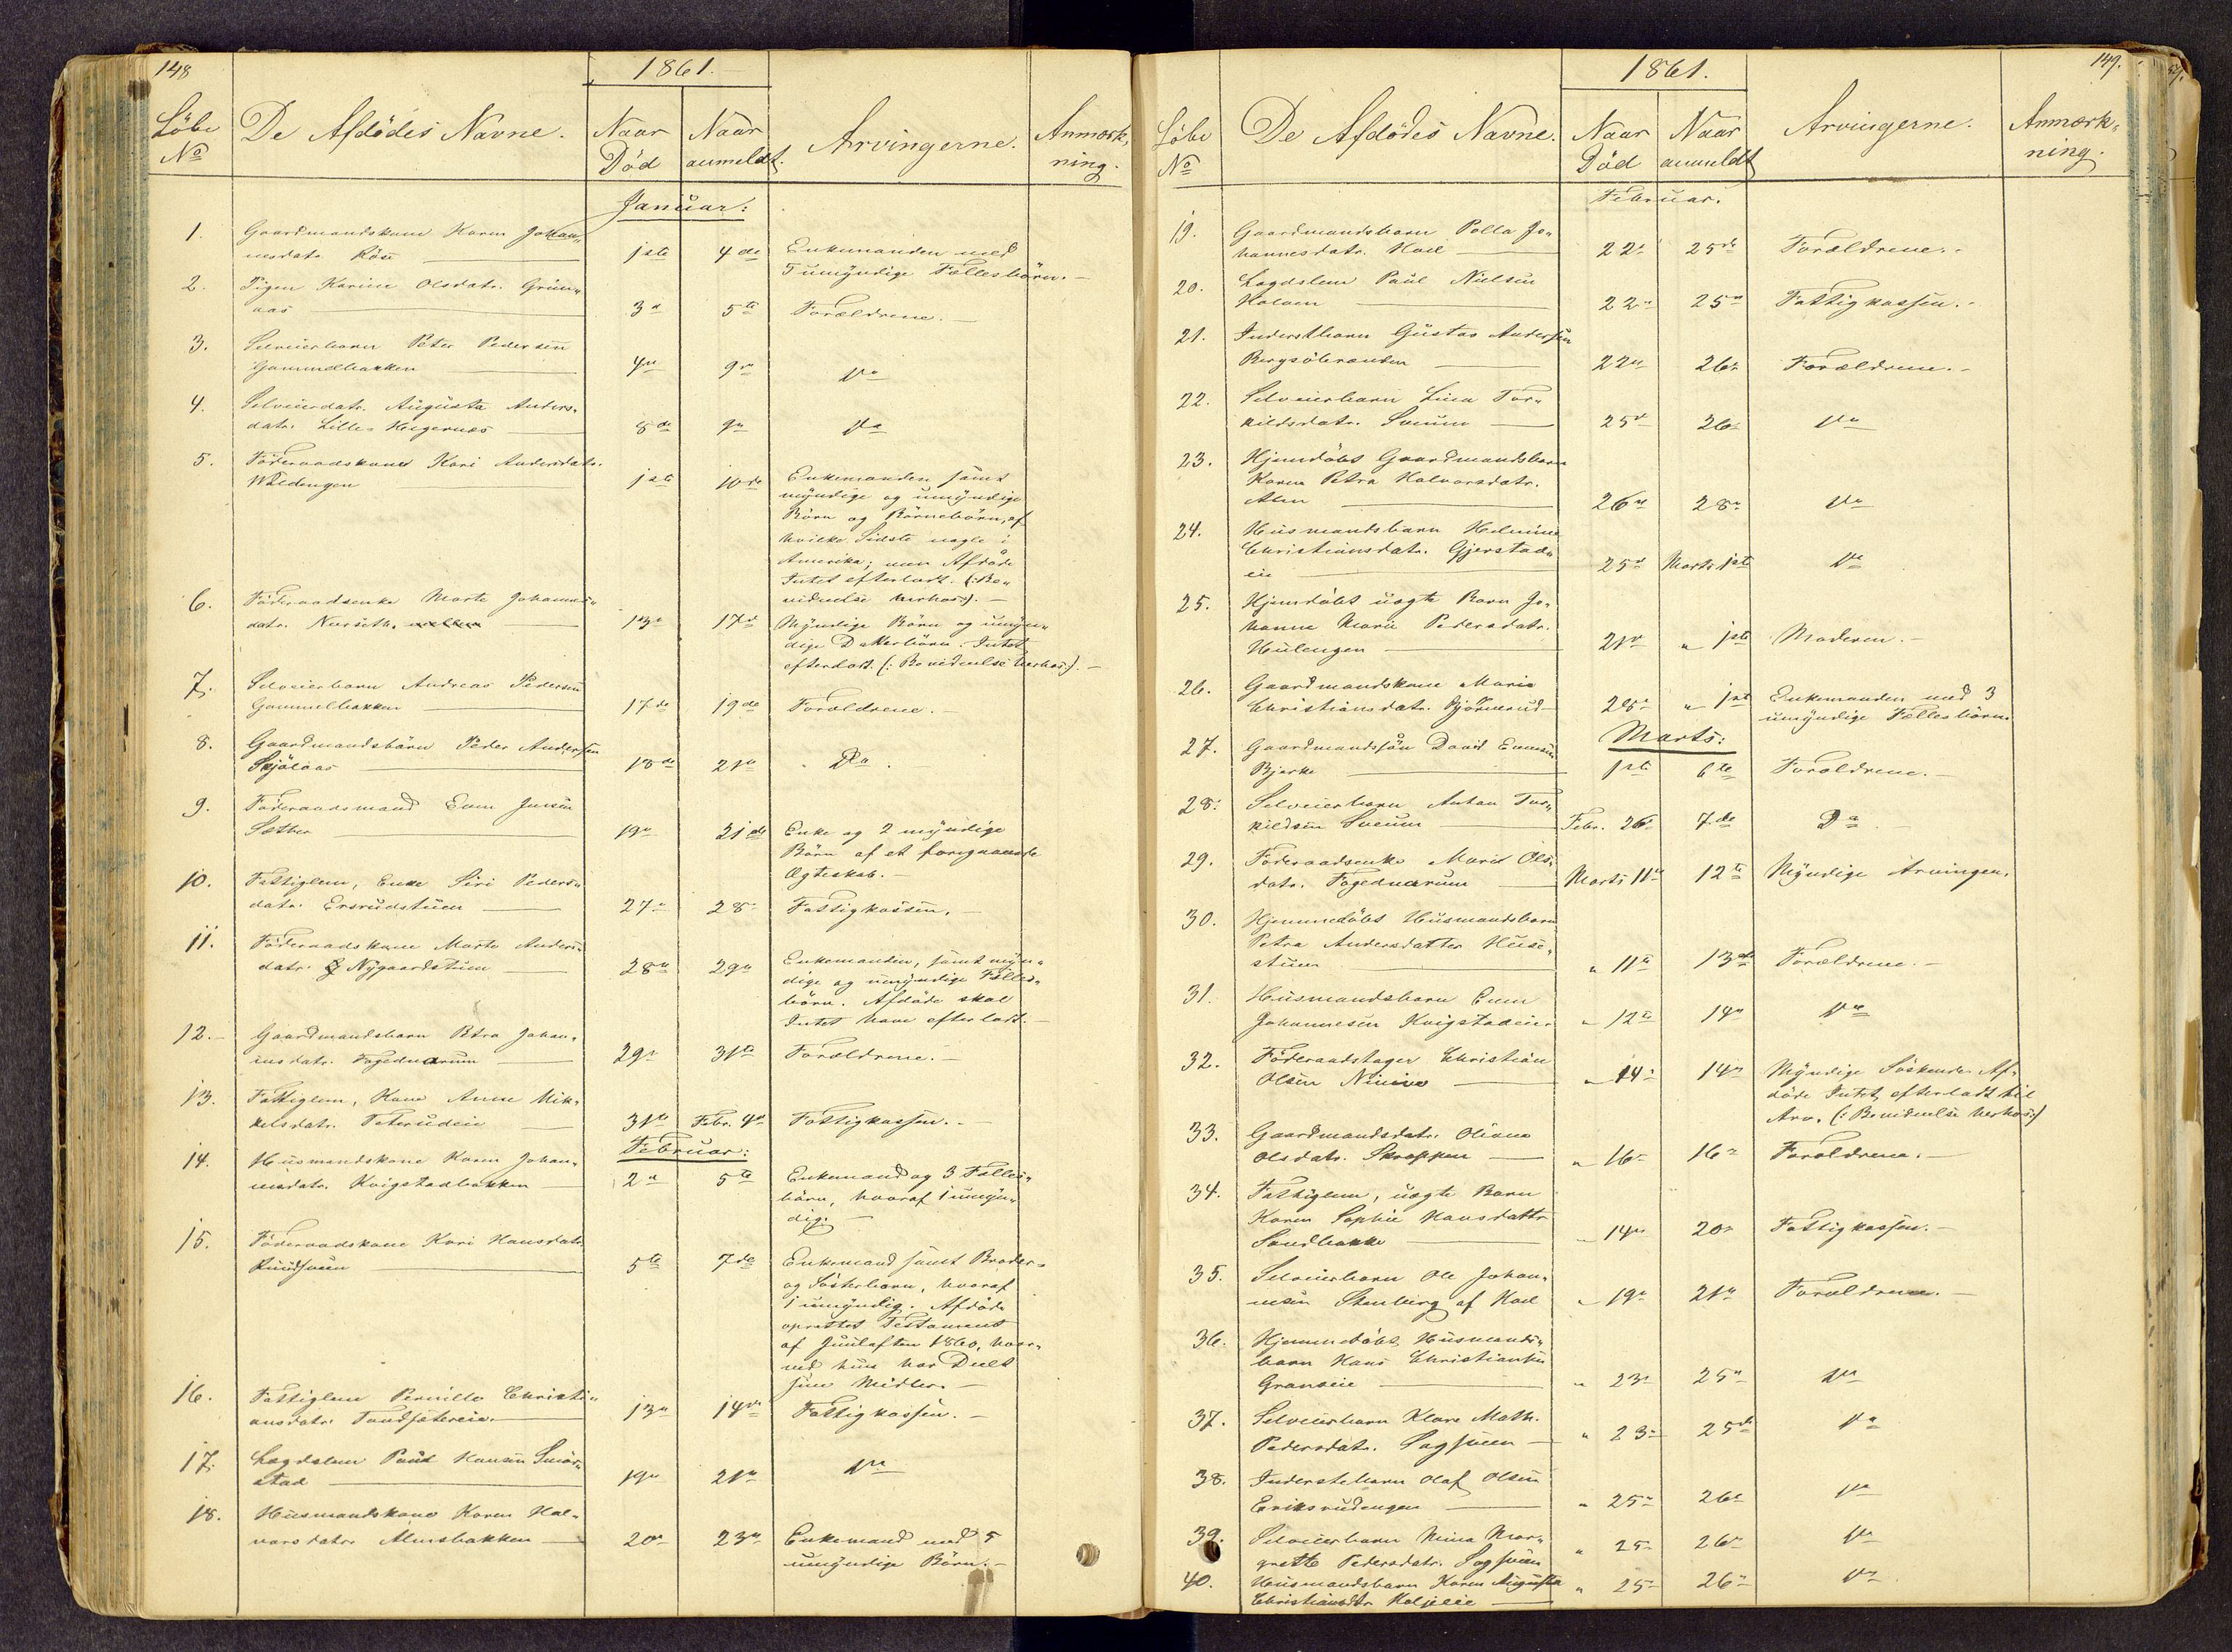 148
1861.
Löbe No
De Afdödes Navne.
Naar Död
Naar anmeldt.
Arvingerne.
Anmærkning.
Januar:
1. Gaardmandskone Karen Johan„
nesdatr. Röse 1ste 4de Enkemanden med
5 umyndige Fællesbörn.
2. Pigen Karine Olsdatr. Grün„
aas 3die 5te Forældrene.
3. Selveierbarn Peter Pedersen
Gammelbakken 4de 9de Do
4. Selveierdatr. Augusta Anders„
datr. Lille Helgernes 8de 9de Do
5. Föderaadskone Kari Andersdatr.
Woldengen 1ste 10de Enkemanden samt
myndige og umyndige
Börn og Börnebörn, af
hvilke Sidste nogle i
Amerika; men Afdöde
Intet efterladt. (: Be„
vidnelse herhos :).
6. Föderaadsenke Marte Johannes„
datr. Nerseth. 13de 17de Myndige Börn og umyn„
dige Datterbörn. Intet
efterladt. (: Bevidnelse herhos :).
7. Selveierbarn Andreas Pedersen
Gammelbakken 17de 19de Forældrene.
8. Gaardmandsbarn Peder Andersen
Skjölaas 18de 21de Do
9. Föderaadsmand Even Jensen
Sæther 19de 21de Enke og 2 myndige
Börn af et foregaaende
Ægteskab.
10. Fattiglem, Enke Siri Peders„
datr. Ersrudstuen 27de 28de Fattigkassen.
11. Föderaadskone Marte Anders„
datr. Nygaardstuen 28de 29de Enkemanden, samt myn„
dige og umyndige Fælles„
börn. Afdöde skal
Intet have efterladt.
12. Gaardmandsbarn Petra Johan„
nesdatr. Fogednærum 29de 31te Forældrene.
13. Fattiglem, Kone Anne Mik„
kelsdatr. Taterudeie 31te Febr. 4de Fattigkassen.
Februar:
14. Husmandskone Karen Johan„
nesdatr. Kvigstadbakken 2den 5te Enkemand og 3 Fælles„
börn, hvoraf 1 umyn„
dig.
15. Föderaadskone Kari Hansdatr.
Knudsveen 5te 7de Enkemand samt Broder„
og Sösterbarn, hvoraf
1 umyndig. Afdöde
oprettet Testament
af Juulaften 1860, hvor„
ved hun har Deelt
sine Midler.
16. Fattiglem Pernille Christi„
ansdatr. Sandsætereie. 13de 14de Fattigkassen.
17. Lægdslem Poul Hansen Smör„
stad 19de 21de Do
18. Husmandskone Karen Hal„
vorsdatr. Almsbakken 20de 23de Enkemand med 5
umyndige Börn.
149.
1861.
Löbe No
De Afdödes Navne.
Naar Död
Naar anmeldt
Arvingerne.
Anmærkning.
Februar.
19. Gaardmandsbarn Polla Jo„
hannesdatr. Hoel 22de 25de Forældrene.
20. Lægdslem Paul Nielsen
Holmen 22de 25de Fattigkassen.
21. Inderstbarn Gustav Andersen
Bergsöbraaten 22de 26de Forældrene.
22. Selveierbarn Lina Tor„
kildsdatr. Sveum 25de 26de Do
23. Hjemdöbt Gaardmandsbarn
Karen Petra Halvorsdatr.
Alm 26de 28de Do
24. Husmandsbarn Helmine
Christiansdatr. Gjerstad„
eie 25de Marts 1ste Do
25. Hjemdöbt uægte Barn Jo„
hanne Marie Pedersdatr.
Hulengen 21de „ 1ste Moderen.
26. Gaardmandskone Marie
Christiansdatr. Björnerud 25de „ 1ste Enkemanden med 3
umyndige Fællesbörn.
Marts:
27. Gaardmandssön David Evensen
Bjerke 1ste 6te Forældrene.
28. Selveierbarn Anton Tor„
kildsen Sveum Febr. 26 7de Do
29. Föderaadsenke Marit Ols„
datr. Fogednærum Marts 11te 12te Myndige Arvinger.
30. Hjemmedöbt Husmandsbarn
Petra Andersdatter Huse„
stuen „ 11te 13de Forældrene.
31. Husmandsbarn Even
Johannesen Kvigstadeie „ 12te 14de Do
32. Föderaadstager Christian
Olsen Ninive „ 14de 14de Myndige Söskende. Af„
döde Intet efterladt til
Arv. (: Bevidnelse herhos :)
33. Gaardmandsdatr. Oliane
Olsdatr. Skrappen „ 16de 16de Forældrene.
34. Fattiglem, uægte Barn
Karen Sophie Hansdattr
Sandbakke „ 14de 20de Fattigkassen.
35. Selveierbarn Ole Johan„
nesen Stenberg af Hoel „ 19de 21de Forældrene.
36. Hjemmedöbt Husmands„
barn Hans Christiansen
Granseie „ 23de 25de Do
37. Selveierbarn Klara Math.
Pedersdatr. Sagsveen „ 23de 25de Do
38. Inderstebarn Olaf Olsen
Eriksrudengen „ 25de 26de Do
39. Selveierbarn Mina Mar„
grethe Pedersdatr. Sagsveen „ 25de 26de Do
40. Husmandsbarn Karen Augusta
Christiansdtr „ 25de 26de Do